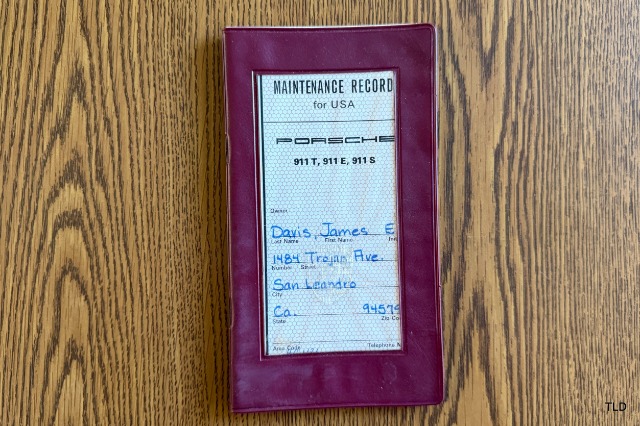 MAINTENANCE RECORD
for USA
PORSCHE
911 T, 911 E, 911 S
Owner
Davis, James E
Last Name First Name
1484 Trojan Ave.
Number Street
San Leandro
City
Ca. 94579
State Zip Co
Area Code Telephone N
TLD